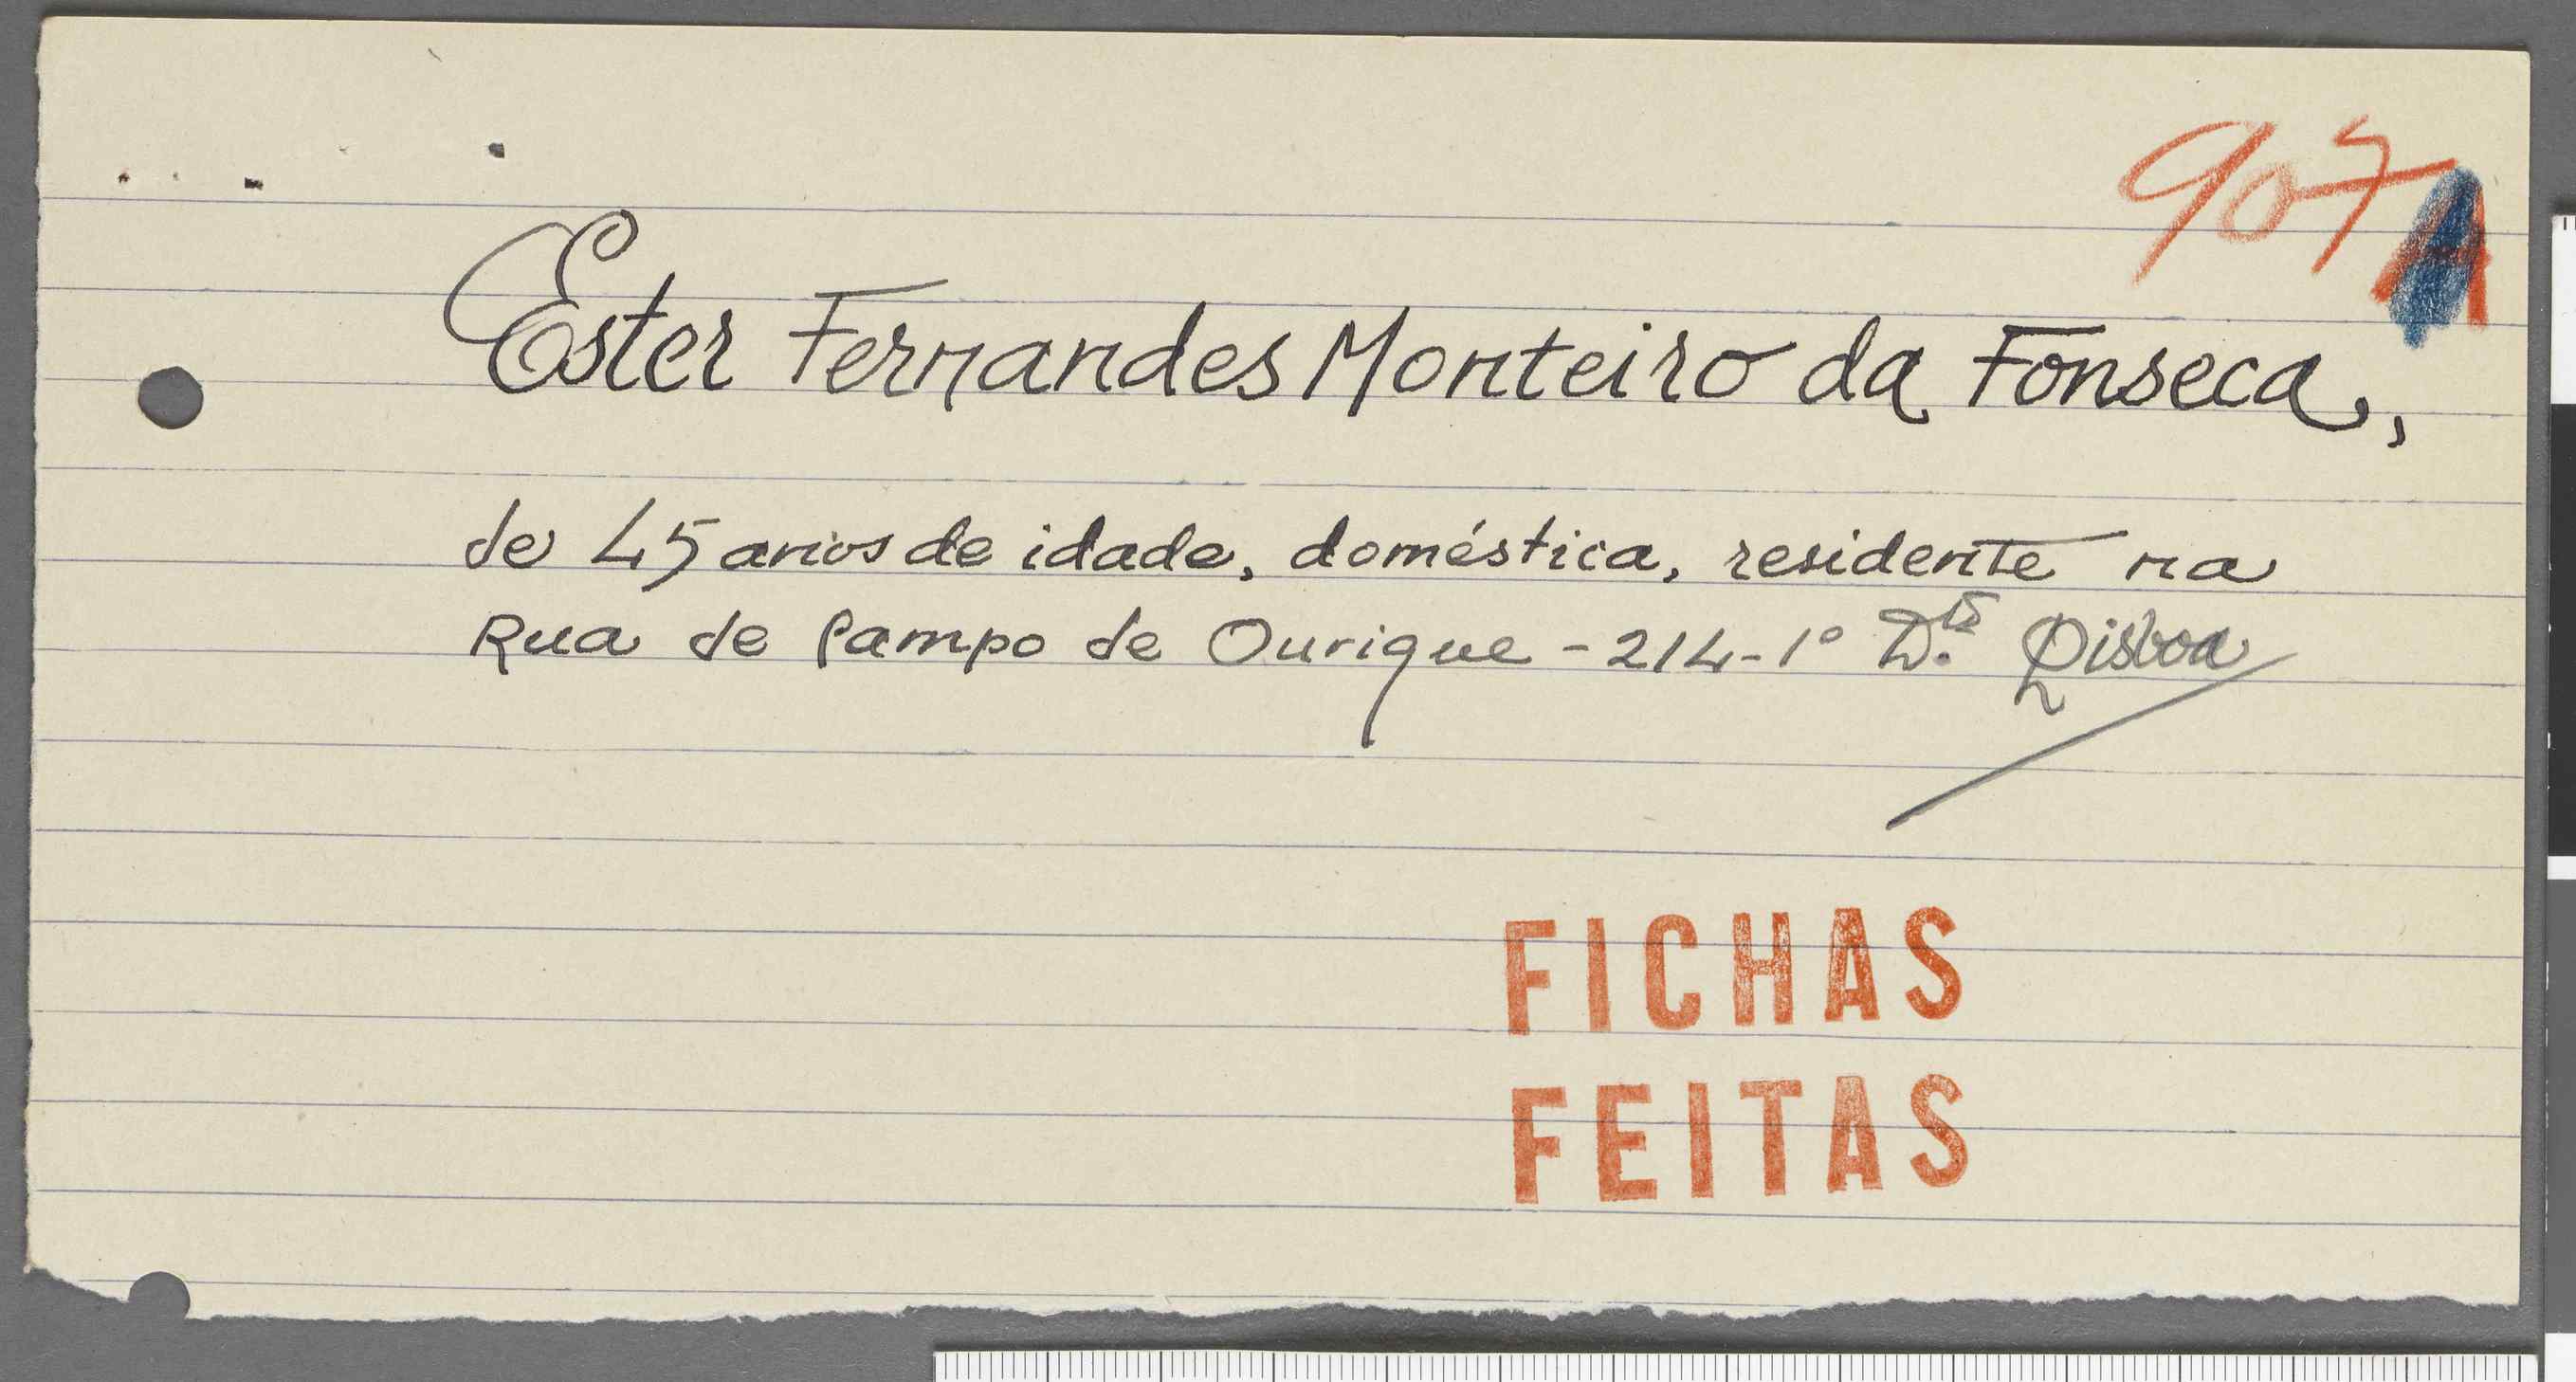 907 A
Ester Fernandes Monteiro da Fonseca,
de 45 anos de idade, doméstica, residente na
Rua de Campo de Ourique - 214 - 1º D.to Lisboa
FICHAS
FEITAS